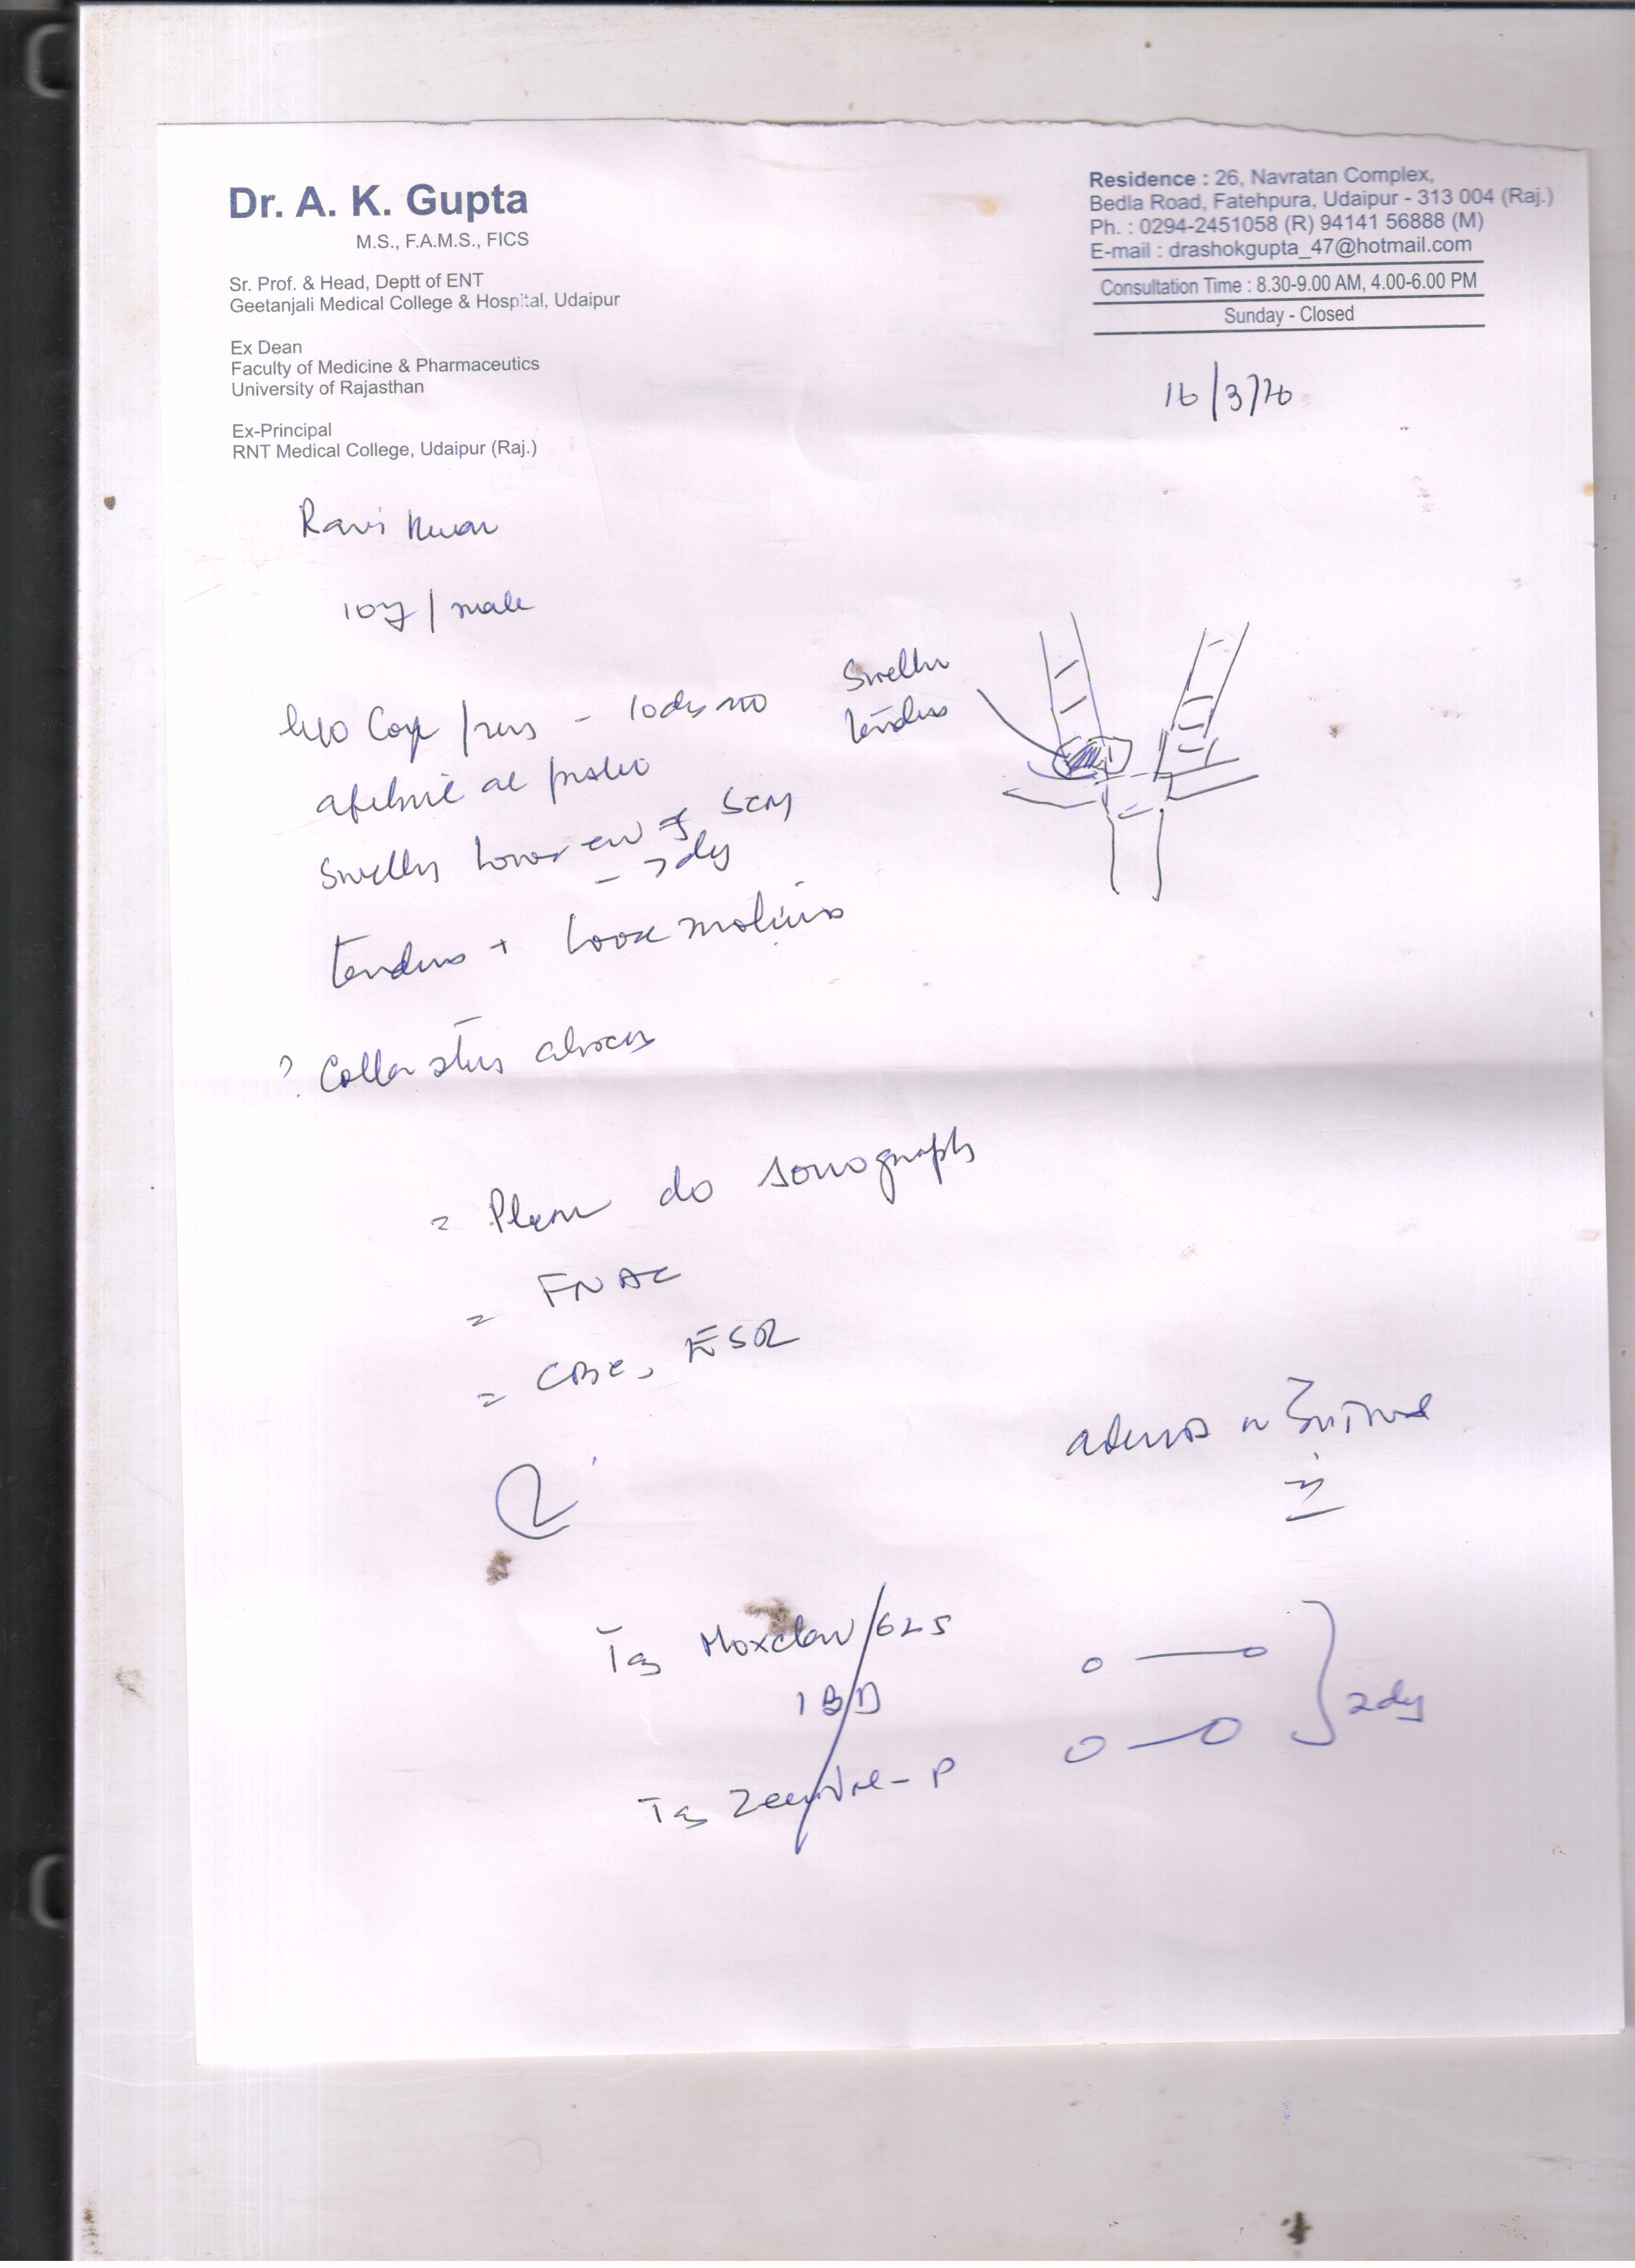 Dr. A. K. Gupta
M.S., F.A.M.S., FICS
Sr. Prof. & Head, Deptt of ENT
Geetanjali Medical College & Hospital, Udaipur
Ex Dean
Faculty of Medicine & Pharmaceutics
University of Rajasthan
Ex-Principal
RNT Medical College, Udaipur (Raj.)
Residence : 26, Navratan Complex,
Bedla Road, Fatehpura, Udaipur - 313 004 (Raj.)
Ph. : 0294-2451058 (R) 94141 56888 (M)
E-mail : drashokgupta_47@hotmail.com
Consultation Time : 8.30-9.00 AM, 4.00-6.00 PM
Sunday - Closed
Ravi
10y / male
H/o
afebrile at
Swelling lower end of SCM
- 7 dy
Tenderness + loose motions
Swelling
tenderness
? Collar stud abscess
= Please do sonography
= FNAC
= CBC, ESR
Tab Moxclav/625
1 BD
Tab - P
2 dy